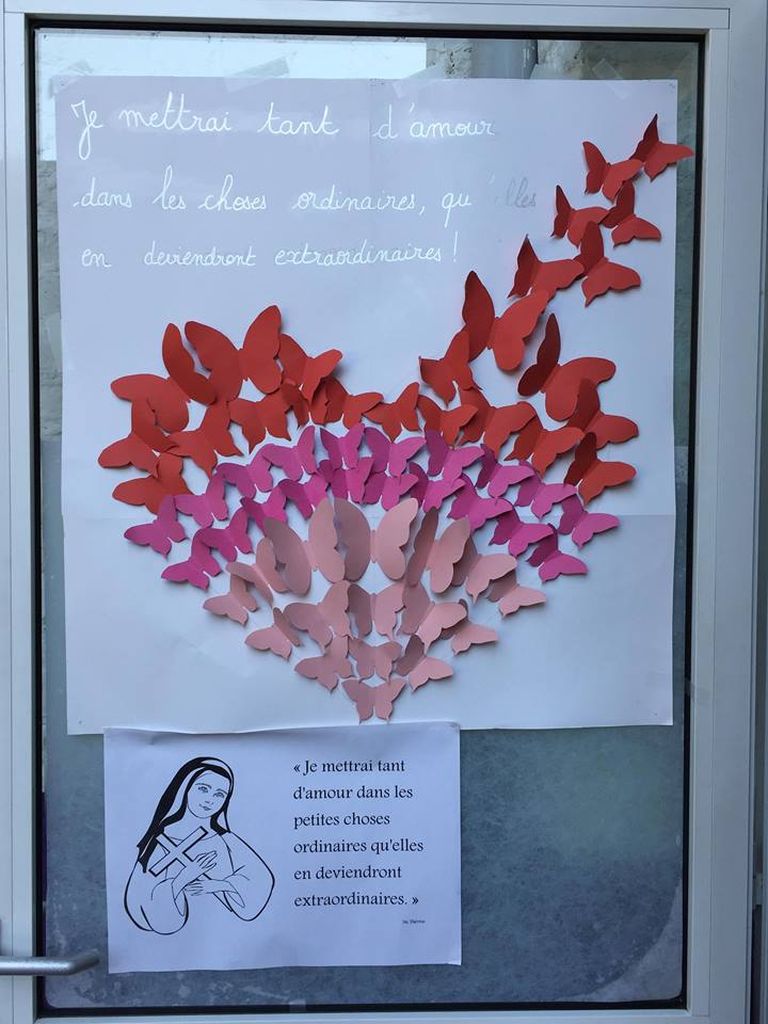 Je mettrai tant d'amour
dans les choses ordinaires, qu'elles
en deviendront extraordinaires !
« Je mettrai tant
d'amour dans les
petites choses
ordinaires qu'elles
en deviendront
extraordinaires. »